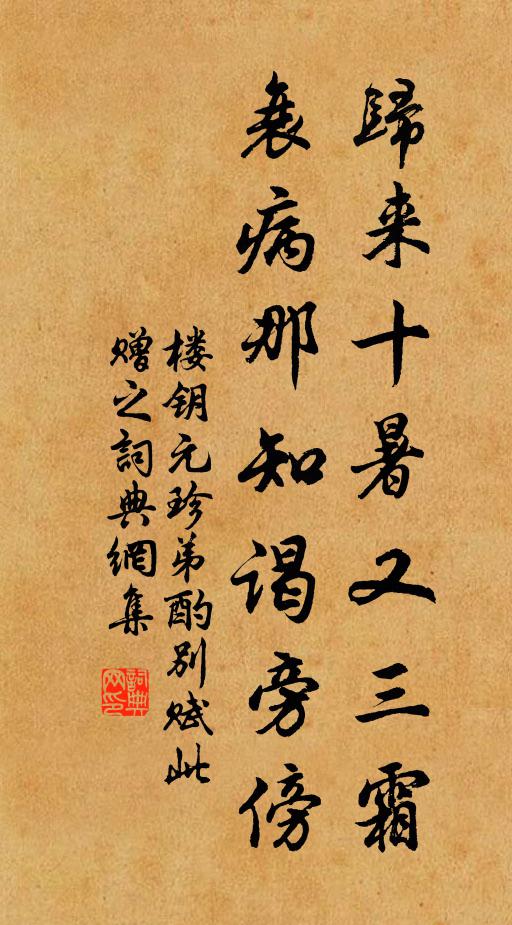 歸来十暑又三霜
衰病那知谒旁傍
楼钥元珍弟酌别赋此
赠之詞典網集
詞典
网印